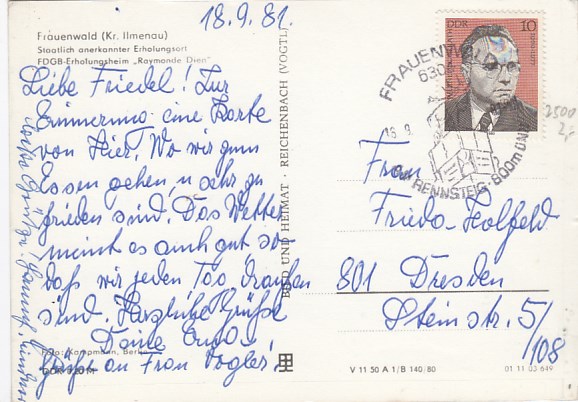 18.9.81.
Frauenwald (Kr. Ilmenau)
Staatlich anerkannter Erholungsort
FDGB-Erholungsheim „Raymonde Dien"
Liebe Friedel! Zur
Erinnerung eine Karte
von Hier, Wo wir zum
Essen gehen, u. sehr zu
frieden sind. Das Wetter
meint es auch gut so
daß wir jeden Tag draußen
sind. Herzliche Grüße
Deine
Grüße an Frau Vogler!
Foto: Kampmann, Berlin
BILD UND HEIMAT · REICHENBACH (VOGTL)
DDR
10
FRAUENWALD
630
18.9.
AM RENNSTEIG · 800m ÜNN
2500
2,-
Frau
Frieda Holfeld
801 Dresden
Steinstr. 5/
/108
V 11 50 A 1/B 140/80
01 11 03 649